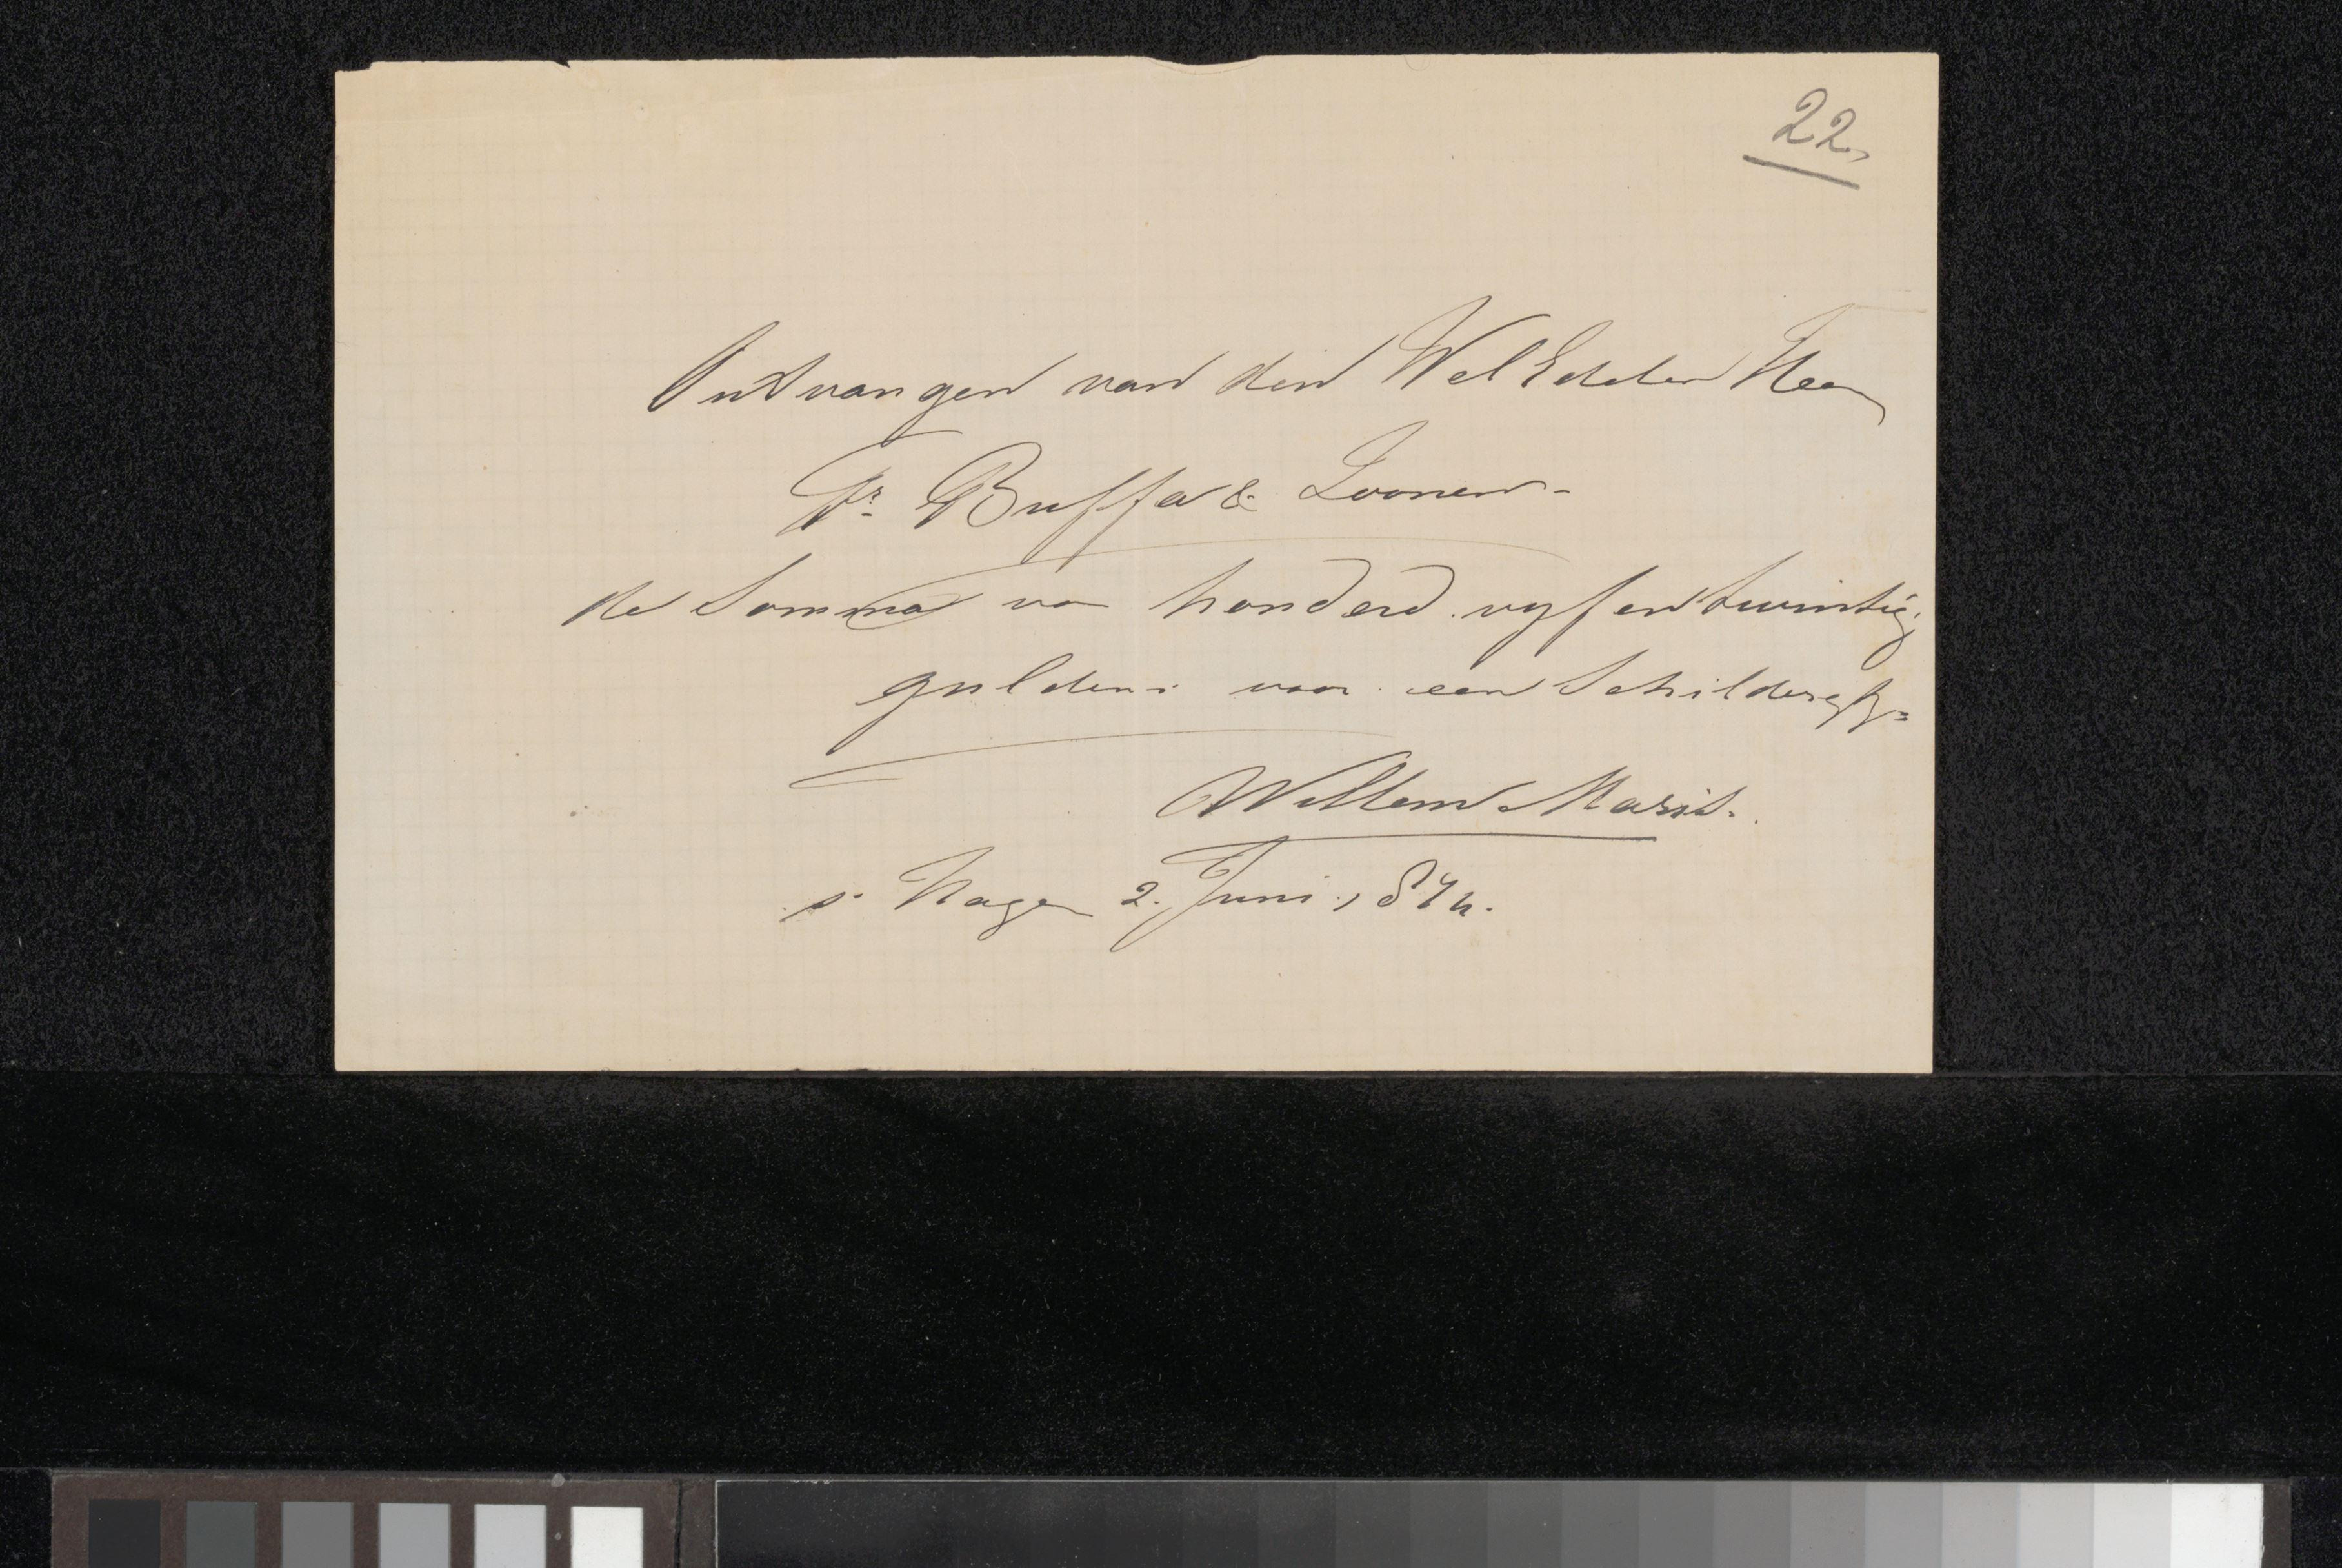 22.
Ontvangen van den Wel Edelen Heer
Fr. Buffa & Zoonen -
de Somma van honderd vyfentwintig
guldens voor een Schildery =
Willem Maris.
s. Hagen 2. Juni.